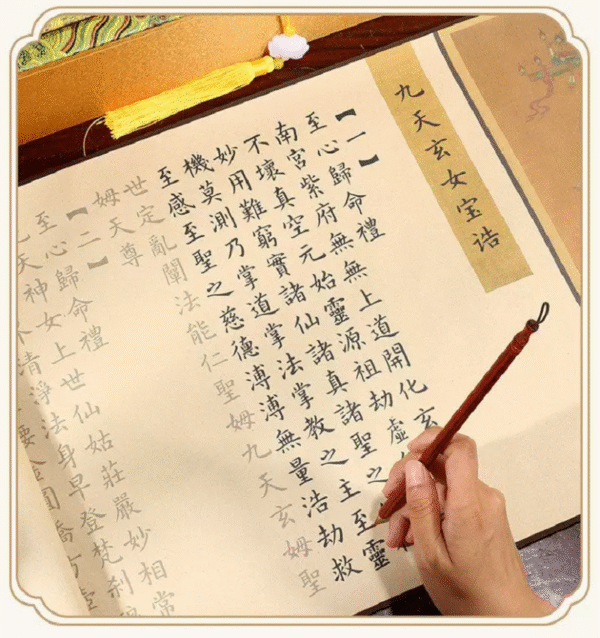 九天玄女宝诰
【一】
至心歸命禮
南宮紫府無無上道開化玄
不壞真空元始靈源祖劫虛
妙用難窮實諸仙諸真諸聖之
機莫測乃掌道掌法掌教之主至靈
至感至聖之慈德溥溥無量浩劫救
世定亂闡法能仁聖姆九天玄姆聖
姆天尊
【二】
至心歸命禮
天神女上世仙姑莊嚴妙相常
清淨法身早登梵剎